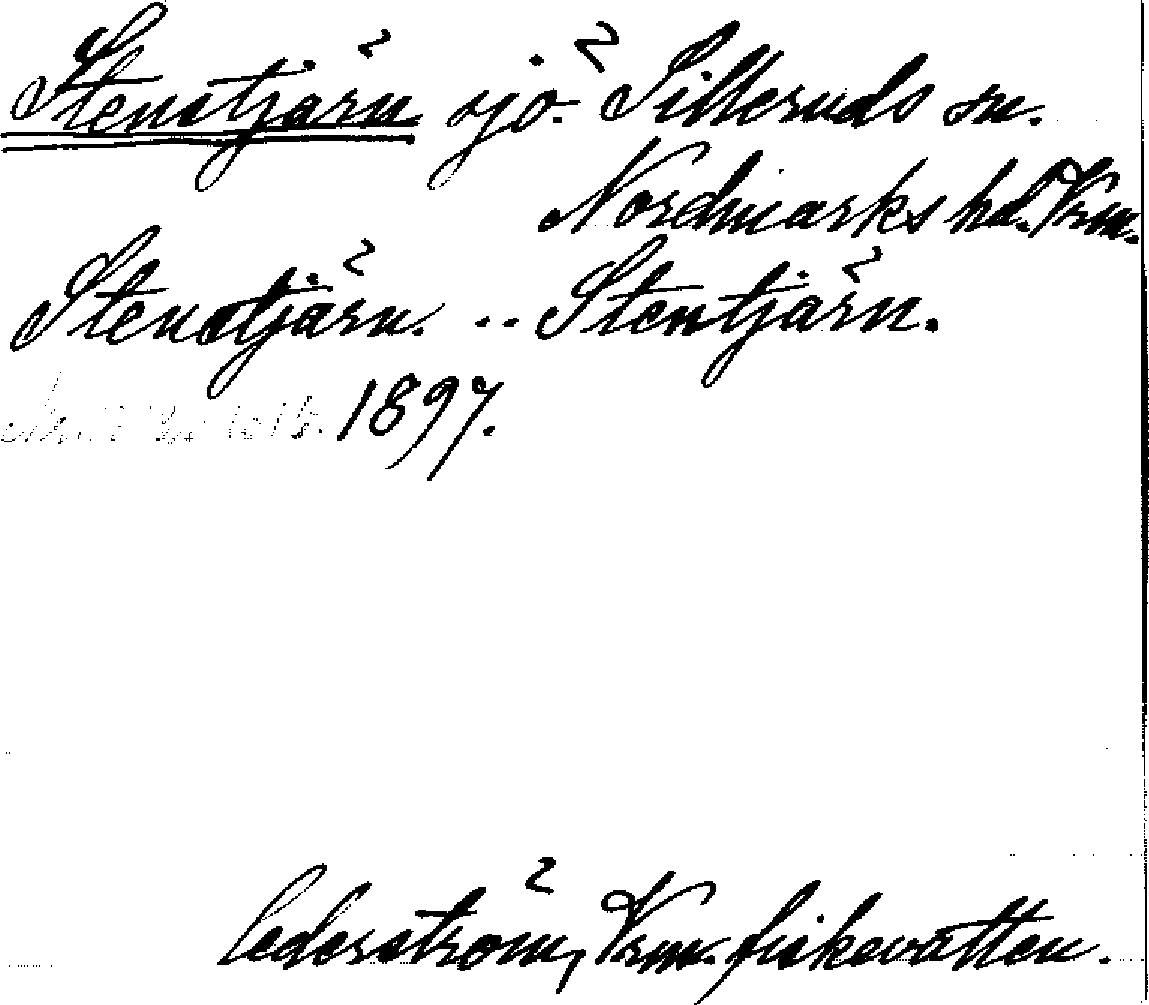 Stenstjärn sjö. Silleruds sn.
Nordmarks hd. Vrm.
Stenstjärn. -- Stentjärn.
1897.
Cederström, Vrm. fiskevatten.